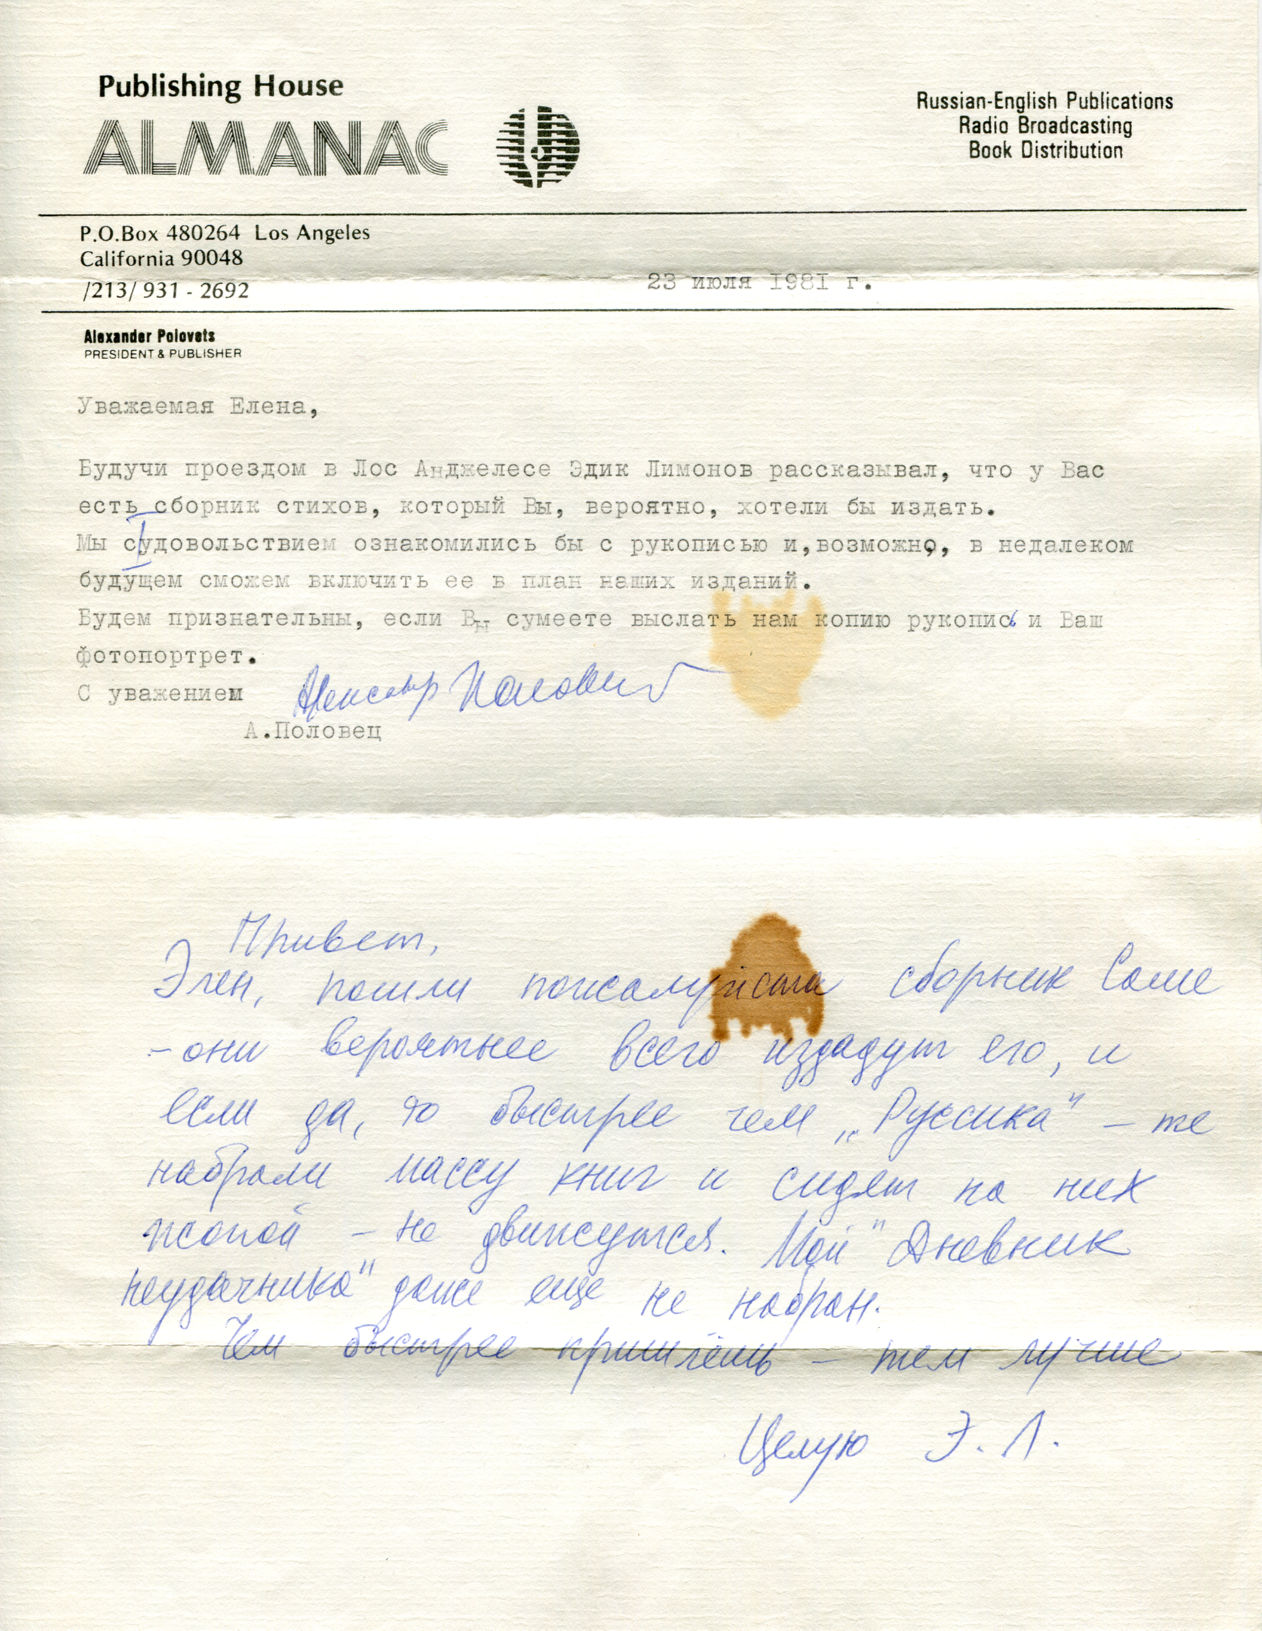 Publishing House
ALMANAC
Russian-English Publications
Radio Broadcasting
Book Distribution
P.O.Box 480264 Los Angeles
California 90048
/213/ 931 - 2692
23 июля I98I г.
Alexander Polovets
PRESIDENT & PUBLISHER
Уважаемая Елена,
Будучи проездом в Лос Анджелесе Эдик Лимонов рассказывал, что у Вас
есть сборник стихов, который Вы, вероятно, хотели бы издать.
Мы судовольствием ознакомились бы с рукописью и,возможно, в недалеком
будущем сможем включить ее в план наших изданий.
Будем признательны, если Вы сумеете выслать нам копию рукописи и Ваш
фотопортрет.
С уважением
Александр Половец
А.Половец
Привет,
Элен, пошли пожалуйста сборник Саше
– они вероятнее всего издадут его, и
если да, то быстрее чем „Руссика" – те
набрали массу книг и сидят на них
жопой – не движутся. Мой "Дневник
неудачника" даже еще не набран.
Чем быстрее пришлёшь – тем лучше
Целую Э. Л.